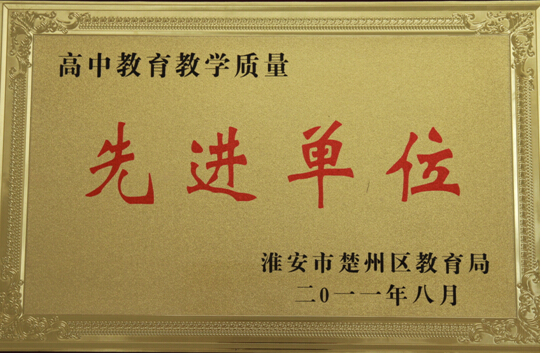 高中教育教学质量
先进单位
淮安市楚州区教育局
二0一一年八月